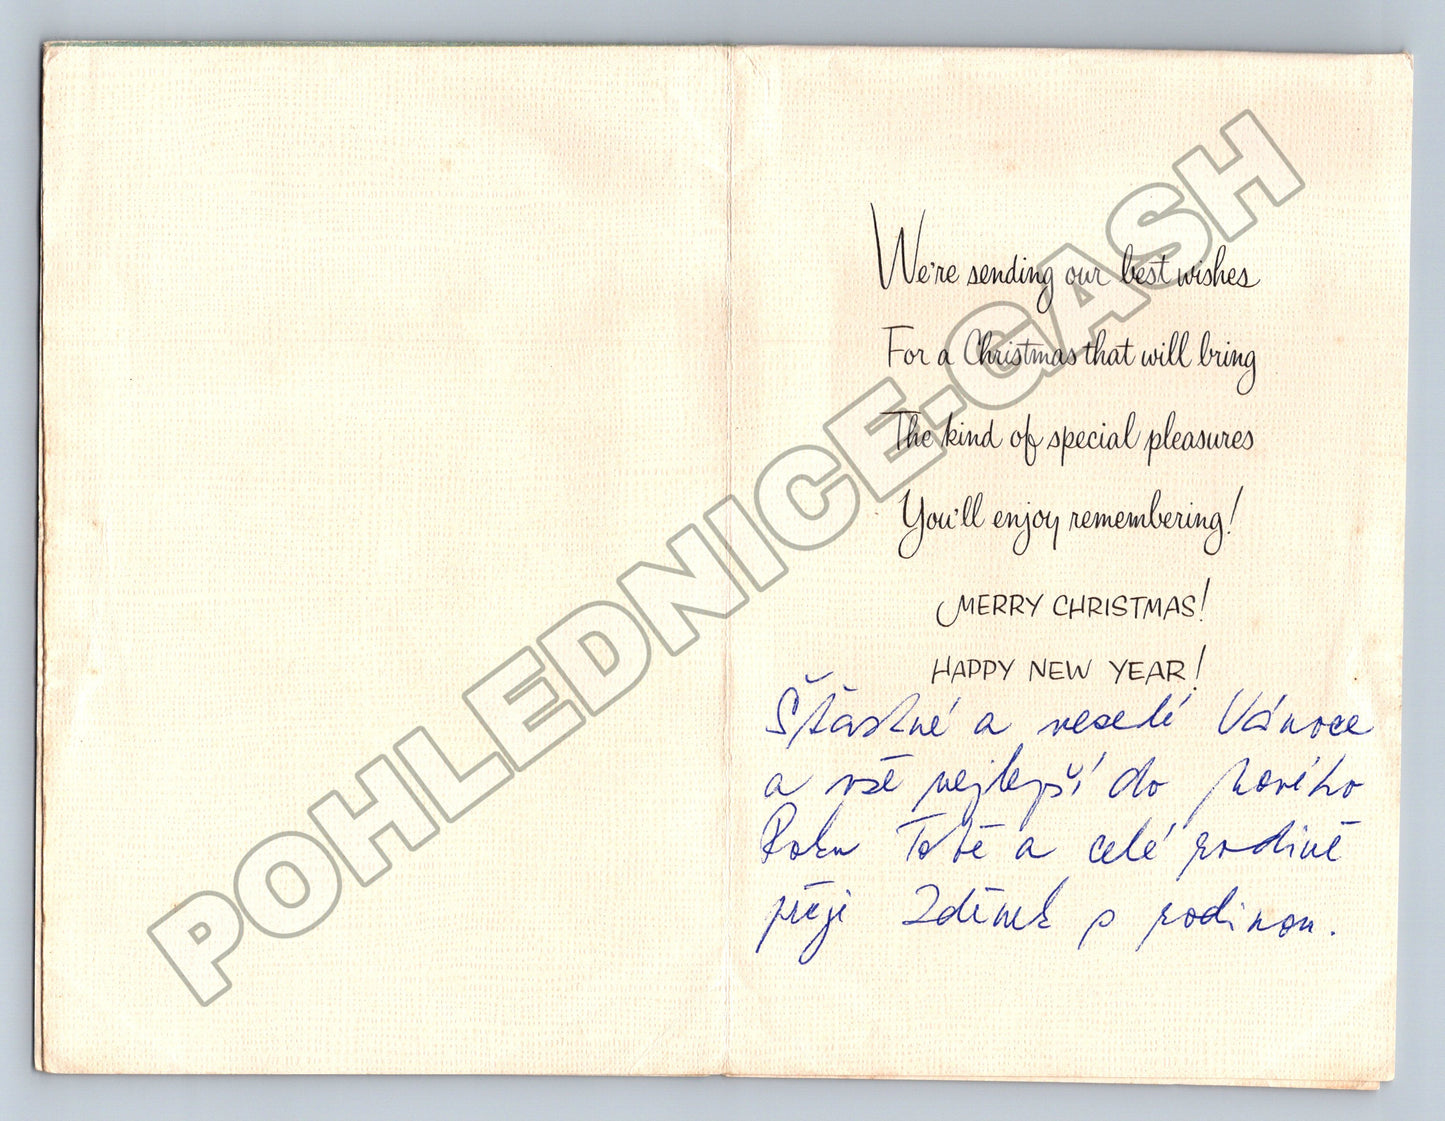 We're sending our best wishes
For a Christmas that will bring
The kind of special pleasures
You'll enjoy remembering!
MERRY CHRISTMAS!
HAPPY NEW YEAR!
Šťastné a veselé Vánoce
a vše nejlepší do Nového
Roku Tobě a celé rodině
přeje Zdeněk s rodinou.
POHLEDNICE.CASH